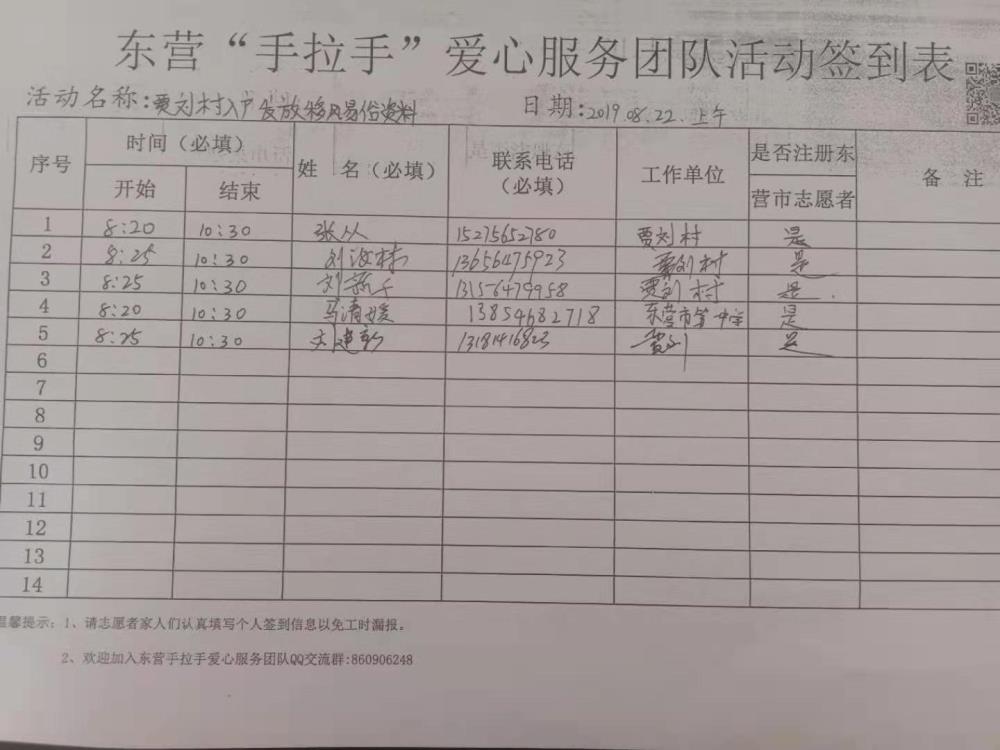 东营“手拉手”爱心服务团队活动签到表
活动名称:贾刘村入户发放移风易俗资料 日期:2019.08.22.上午
序号 时间（必填） 姓 名（必填） 联系电话（必填） 工作单位 是否注册东营市志愿者 备 注
开始 结束
1 8:20 10:30 张从 15275652780 贾刘村 是
2 8:25 10:30 刘汝村 13656475923 贾刘村 是
3 8:25 10:30 刘 13156479958 贾刘村 是
4 8:20 10:30 马清媛 13854682718 东营市第一中学 是
5 8:25 10:30 建新 13181416823 贾刘 是
6
7
8
9
10
11
12
13
14
温馨提示：1、请志愿者家人们认真填写个人签到信息以免工时漏报。
2、欢迎加入东营手拉手爱心服务团队QQ交流群:860906248